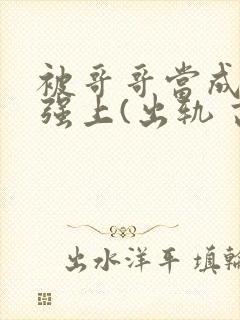 被哥哥當成
强上(出轨
出水洋平 填輪